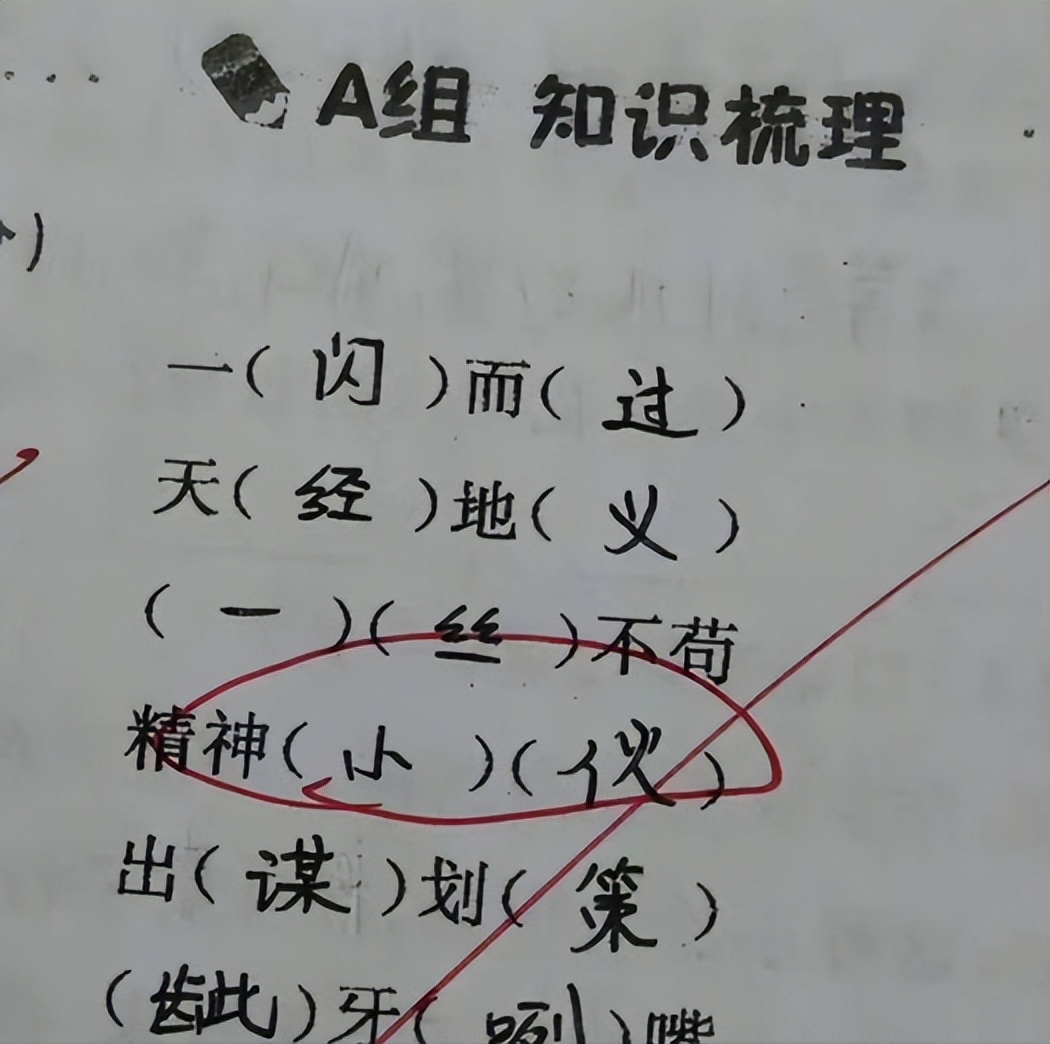 A组 知识梳理
)
一( 闪 )而( 过 )
天( 经 )地( 义 )
( 一 )( 丝 )不苟
精神( 小 )( 伙 )
出( 谋 )划( 策 )
(龇)牙( 咧 )嘴